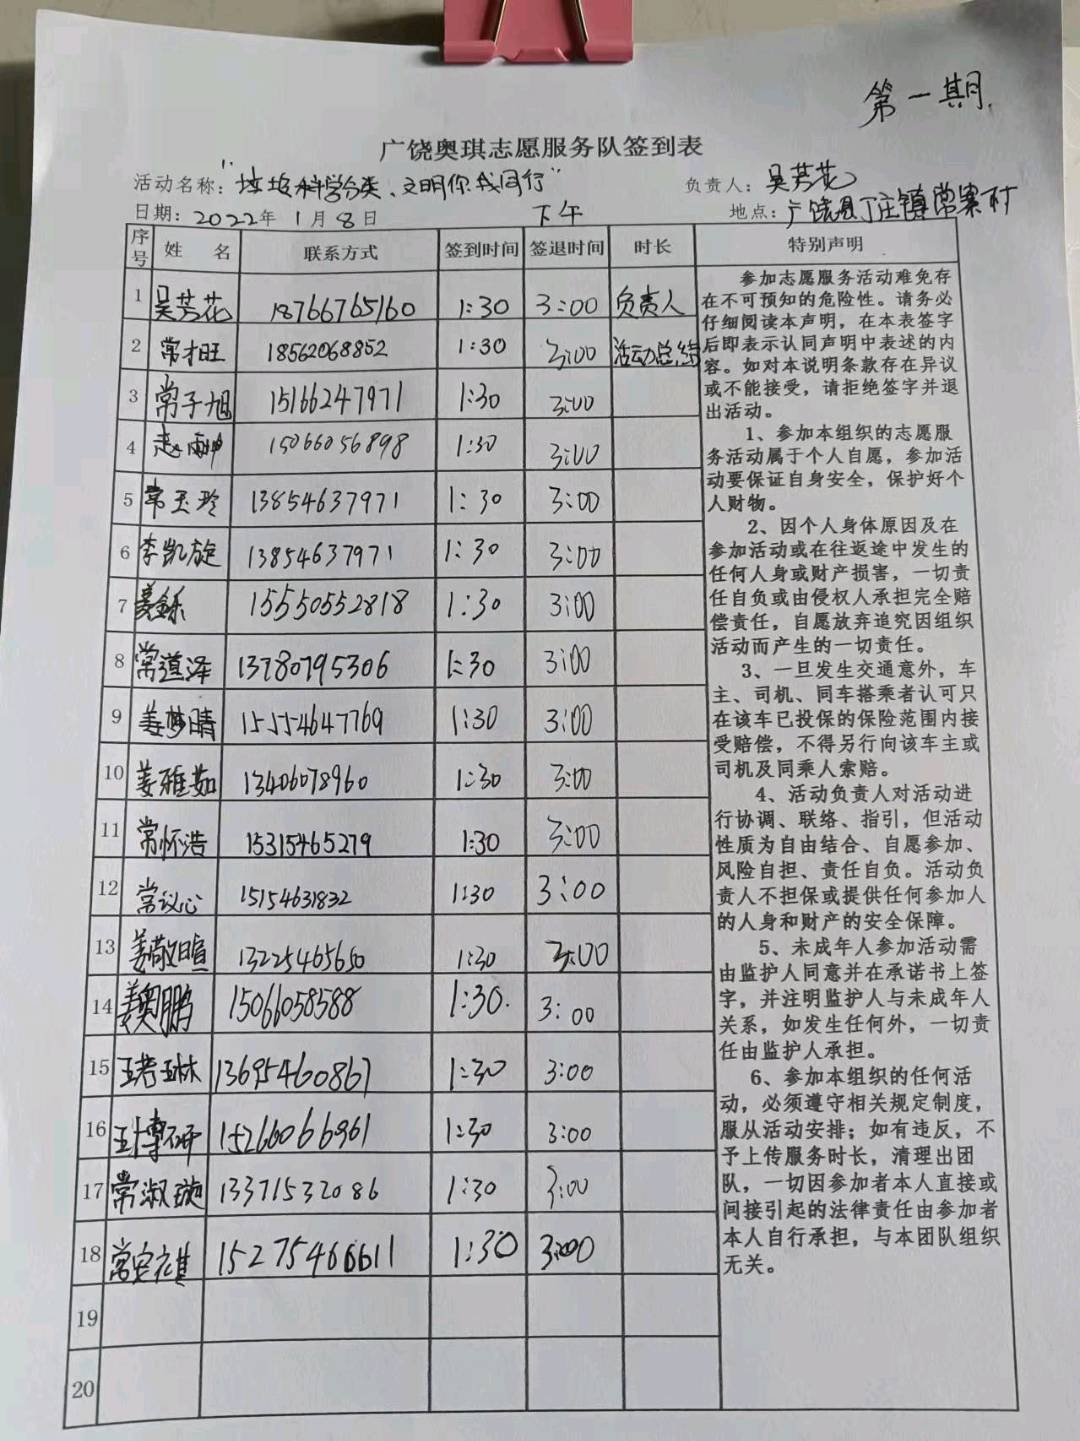 第一期.
广饶奥琪志愿服务队签到表
活动名称：“垃圾科学分类、文明你我同行” 负责人：吴芳花
日期：2022年1月8日 下午 地点：广饶县丁庄镇常寨村
序号 姓名 联系方式 签到时间 签退时间 时长 特别声明
1 吴芳花 18766765160 1:30 3:00 负责人
2 常才旺 18562068852 1:30 3:00 活动总结
3 常子旭 15166247971 1:30 3:00
4 15066056898 1:30 3:00
5 常玉玲 13854637971 1:30 3:00
6 李凯旋 13854637971 1:30 3:00
7 15550552818 1:30 3:00
8 常道泽 13780795306 1:30 3:00
9 姜梦晴 15554647769 1:30 3:00
10 姜雅茹 13406078960 1:30 3:00
11 常怀浩 15315465279 1:30 3:00
12 常议心 15154631832 1:30 3:00
13 姜敬暄 13225465650 1:30 3:00
14 姜奥鹏 15066058588 1:30. 3:00
15 王若琳 13695460867 1:30 3:00
16 王博研 15266066961 1:30 3:00
17 常淑璇 13371532086 1:30 3:00
18 15275466611 1:30 3:00
19
20
参加志愿服务活动难免存
在不可预知的危险性。请务必
仔细阅读本声明，在本表签字
后即表示认同声明中表述的内
容。如对本说明条款存在异议
或不能接受，请拒绝签字并退
出活动。
1、参加本组织的志愿服
务活动属于个人自愿，参加活
动要保证自身安全，保护好个
人财物。
2、因个人身体原因及在
参加活动或在往返途中发生的
任何人身或财产损害，一切责
任自负或由侵权人承担完全赔
偿责任，自愿放弃追究因组织
活动而产生的一切责任。
3、一旦发生交通意外，车
主、司机、同车搭乘者认可只
在该车已投保的保险范围内接
受赔偿，不得另行向该车主或
司机及同乘人索赔。
4、活动负责人对活动进
行协调、联络、指引，但活动
性质为自由结合、自愿参加、
风险自担、责任自负。活动负
责人不担保或提供任何参加人
的人身和财产的安全保障。
5、未成年人参加活动需
由监护人同意并在承诺书上签
字，并注明监护人与未成年人
关系，如发生任何外，一切责
任由监护人承担。
6、参加本组织的任何活
动，必须遵守相关规定制度，
服从活动安排；如有违反，不
予上传服务时长，清理出团
队，一切因参加者本人直接或
间接引起的法律责任由参加者
本人自行承担，与本团队组织
无关。